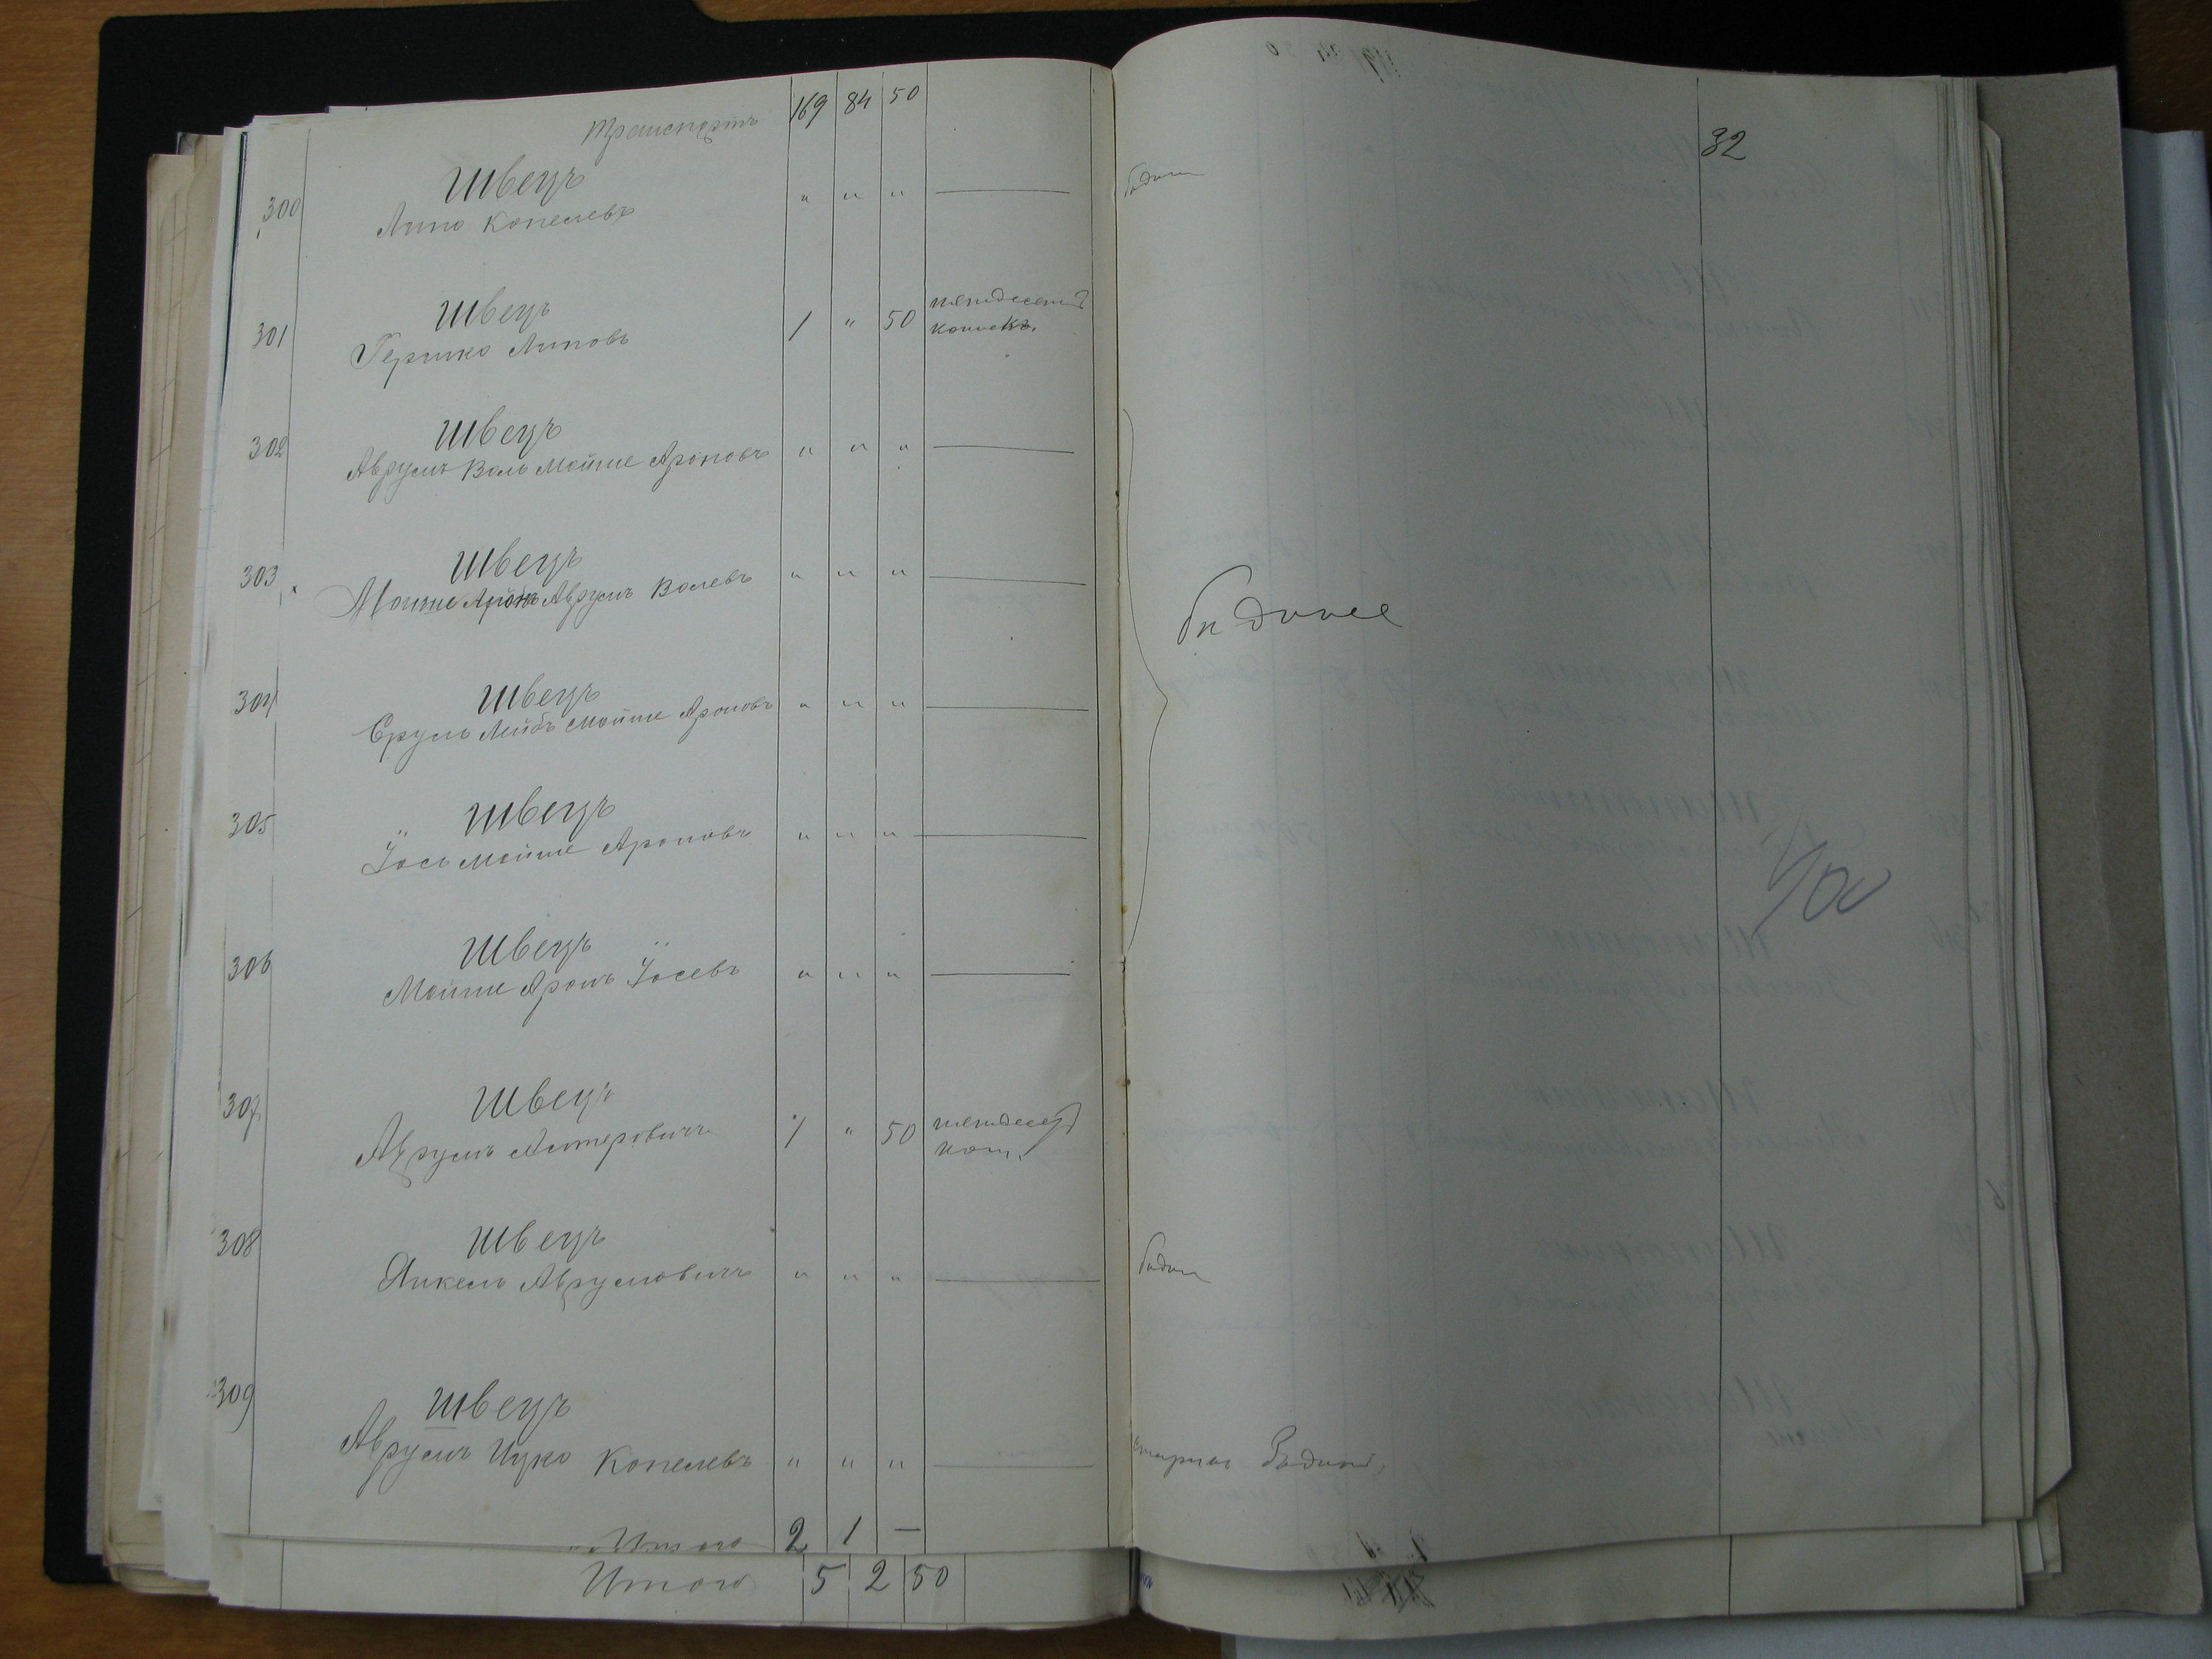 Транспортъ 169 84 50
32
300 Швецъ
Липа Копелевъ " " " — бѣдни
301 Швецъ
Гершко Липовъ 1 " 50 пятдесятъ
копѣекъ.
302 Швецъ
Аврумъ Волъ Мойше Ароновъ " " " —
303 Швецъ
Мойше Аронъ Аврумъ Волевъ " " " —
бѣдные
304 Швецъ
Срулъ Лейбъ Мойше Ароновъ " " " —
305 Швецъ
Іосъ Мойше Ароновъ " " " —
306 Швецъ
Мойше Аронъ Іосевъ " " " —
307 Швецъ
Аврумъ Алтеровичъ 1 " 50 пятдесят
коп.
308 Швецъ
Янкель Аврумовичъ " " " — бѣдн
309 Швецъ
Аврумъ Ицко Копелевъ " " " — старикъ бѣдный
Итого 2 1 —
Итого 5 2 50